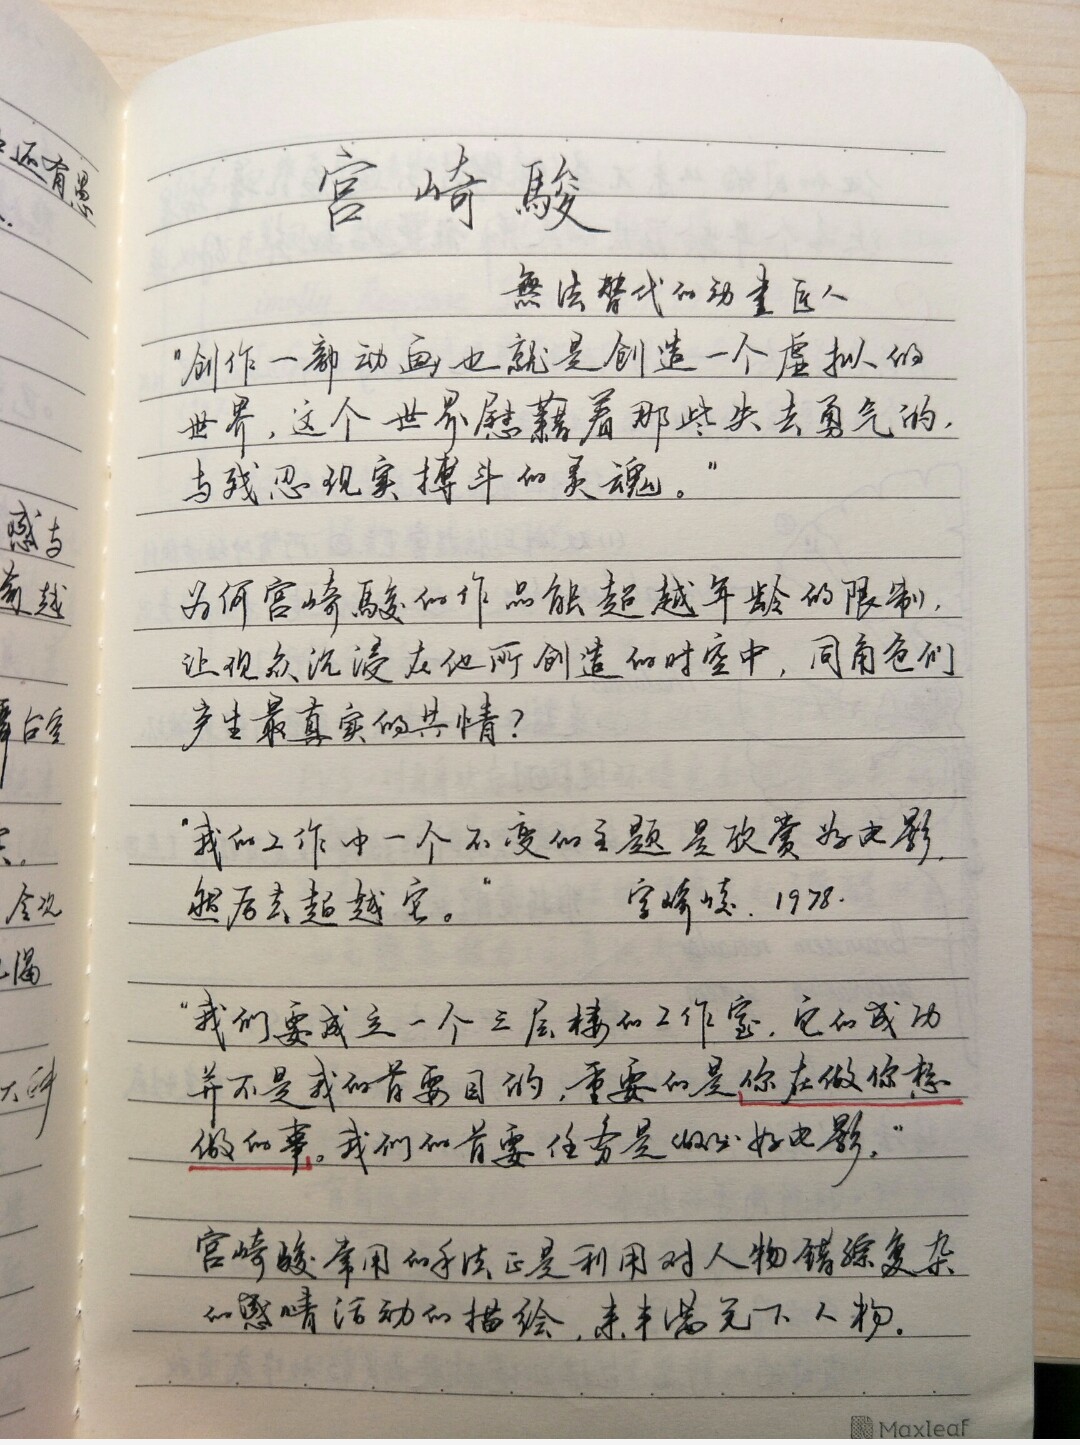 宫崎駿
無法替代的动画匠人
"创作一部动画,也就是创造一个虚拟的
世界,这个世界慰藉着那些失去勇气的,
与残忍现实搏斗的灵魂。"
为何宫崎駿的作品能超越年龄的限制,
让观众沉浸在他所创造的时空中,同角色们
产生最真实的共情?
"我的工作中一个不变的主题是欣赏好电影,
然后去超越它。" 宫崎骏. 1978.
"我们要成立一个三层楼的工作室,它的成功
并不是我的首要目的,重要的是,你在做你想
做的事。我们的首要任务是做出好电影。"
宫崎駿常用的手法正是利用对人物错综复杂
的感情活动的描绘,来丰满笔下人物。
还有愚
感与
越
台
满
Maxleaf